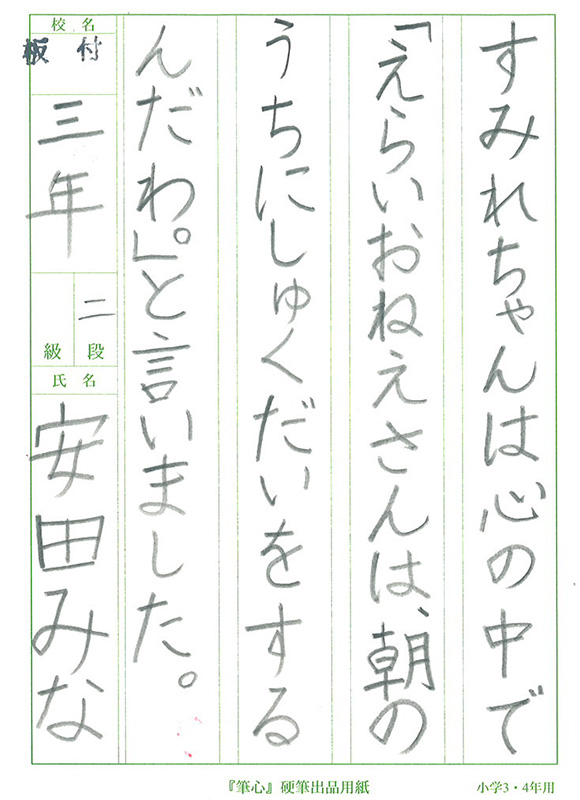 すみれちゃんは心の中で
「えらいおねえさんは、朝の
うちにしゅくだいをする
んだわ。」と言いました。
校名
板付
三年
二段
級
氏名
安田みな
『筆心』硬筆出品用紙
小学3・4年用